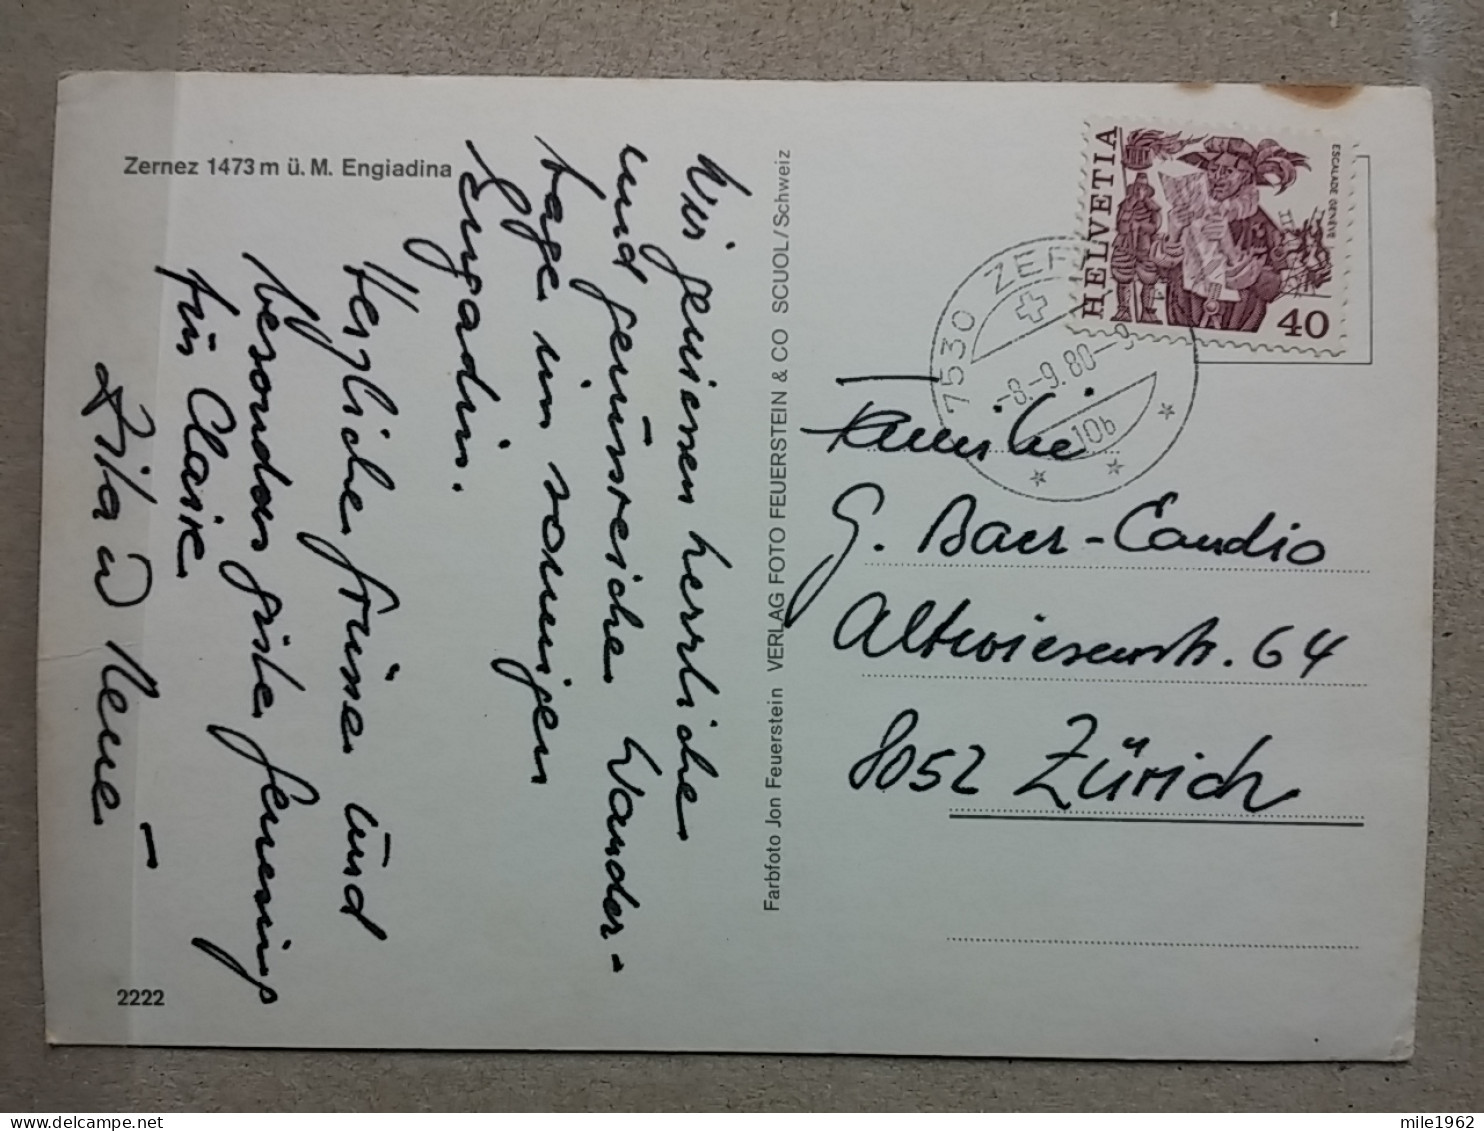 Zernez 1473 m ü. M. Engiadina
Wir geniessen herrliche
und genussreiche Wander-
tage im sonnigen
Engadin.
Herzliche Grüsse und
besonders gute Genesung
für Claire
Rita u René
2222
Farbfoto Jon Feuerstein VERLAG FOTO FEUERSTEIN & CO SCUOL/Schweiz
HELVETIA
ESCALADE GENÈVE
40
7530 ZER
-8.-9.80--9
10b
Familie
G. Baer-Candio
Altwiesenstr. 64
8052 Zürich
mile1962